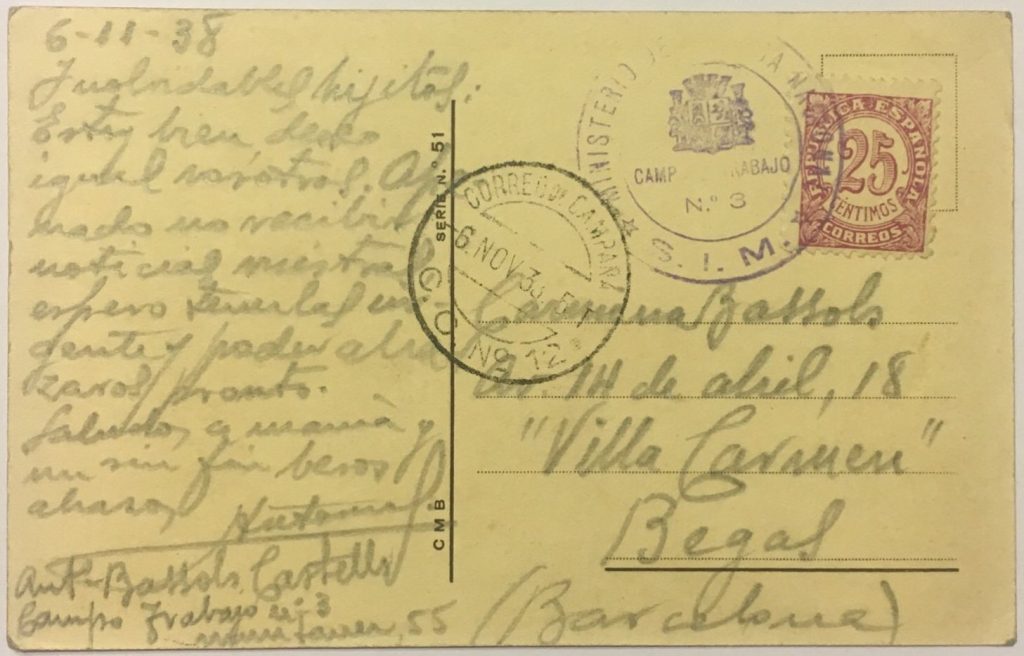 6-11-38
Inolvidables hijitas:
Estoy bien deseo
igual vosotras. Ape-
nado no recibir
noticias vuestras
espero tenerlas ur-
gente y poder abra-
zaros pronto.
Saludos a mamá y
un sin fin besos
abrazos
Antonio
Antº Bassols Castells
Campo Trabajo nº 3
Muntaner, 55
CMB
SERIE N.º 51
CORREO DE CAMPAÑA
6 NOV 38
C.C.
Nº 12
MINISTERIO DE
CAMP TRABAJO
N.º 3
S. I. M.
REPÚBLICA ESPAÑOLA
25
CÉNTIMOS
CORREOS
Carmina Bassols
Av. 14 de abril, 18
"Villa Carmen"
Begas
(Barcelona)